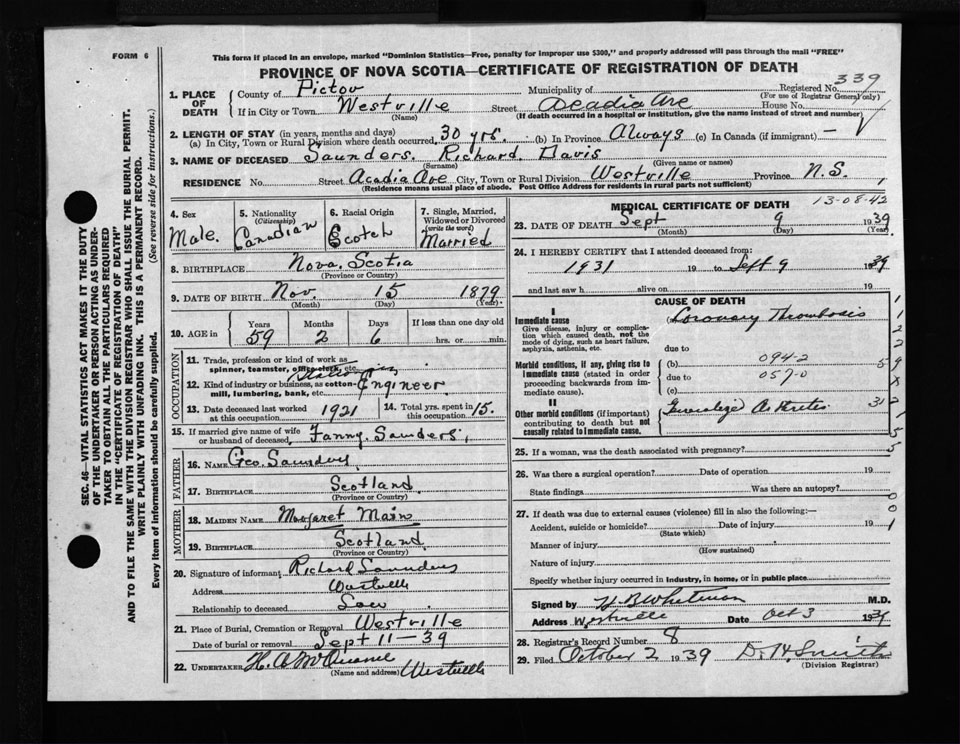 FORM 6
This form if placed in an envelope, marked "Dominion Statistics—Free, penalty for improper use $300," and properly addressed will pass through the mail "FREE"
PROVINCE OF NOVA SCOTIA—CERTIFICATE OF REGISTRATION OF DEATH
339
1. PLACE OF DEATH
County of Pictou Municipality of Registered No.
(For use of Registrar General only)
If in City or Town Westville Street Acadia Ave House No.
(Name) (If death occurred in a hospital or institution, give the name instead of street and number)
2. LENGTH OF STAY (in years, months and days)
(a) In City, Town or Rural Division where death occurred, 30 yrs. (b) In Province Always (c) In Canada (if immigrant) —
3. NAME OF DECEASED Saunders. Richard. Davis
(Surname) (Given name or names)
RESIDENCE No. Street Acadia Ave City, Town or Rural Division Westville Province N.S.
(Residence means usual place of abode. Post Office Address for residents in rural parts not sufficient)
4. Sex Male.
5. Nationality (Citizenship) Canadian
6. Racial Origin Scotch
7. Single, Married, Widowed or Divorced (write the word) Married
8. BIRTHPLACE Nova. Scotia
(Province or Country)
9. DATE OF BIRTH Nov. 15 1879
(Month) (Day) (Year)
10. AGE in Years Months Days If less than one day old
59 2 6 hrs. or min.
OCCUPATION
11. Trade, profession or kind of work as spinner, teamster, office clerk, etc.
12. Kind of industry or business, as cotton-mill, lumbering, bank, etc. Engineer
13. Date deceased last worked at this occupation 1921
14. Total yrs. spent in this occupation 15.
15. If married give name of wife or husband of deceased, Fanny. Saunders,
FATHER
16. NAME Geo. Saunders
17. BIRTHPLACE Scotland.
(Province or Country)
MOTHER
18. MAIDEN NAME Margaret Main
19. BIRTHPLACE Scotland
(Province or Country)
20. Signature of informant Richard Saunders
Address Westville
Relationship to deceased Son
21. Place of Burial, Cremation or Removal Westville
Date of burial or removal Sept 11—39
22. UNDERTAKER Westville
(Name and address)
MEDICAL CERTIFICATE OF DEATH
13-08-42
23. DATE OF DEATH Sept 9 1939
(Month) (Day) (Year)
24. I HEREBY CERTIFY that I attended deceased from:
1931 19 to Sept 9 1939
and last saw h alive on 19
CAUSE OF DEATH
I
Immediate cause
Give disease, injury or complication which caused death, not the mode of dying, such as heart failure, asphyxia, asthenia, etc.
(a) Coronary Thrombosis
due to
094-2
Morbid conditions, if any, giving rise to immediate cause (stated in order proceeding backwards from immediate cause).
(b)
due to 057-0
(c)
II
Other morbid conditions (if important) contributing to death but not causally related to immediate cause.
Generalized Arthritis
25. If a woman, was the death associated with pregnancy?
26. Was there a surgical operation? Date of operation 19
State findings Was there an autopsy?
27. If death was due to external causes (violence) fill in also the following:—
Accident, suicide or homicide? Date of injury 19
(State which)
Manner of injury
(How sustained)
Nature of injury
Specify whether injury occurred in industry, in home, or in public place
Signed by H B Whitman M.D.
Address Westville Date Oct 3 1939
28. Registrar's Record Number 8
29. Filed October 2 1939 D. H. Smith
(Division Registrar)
SEC. 46—VITAL STATISTICS ACT MAKES IT THE DUTY OF THE UNDERTAKER OR PERSON ACTING AS UNDERTAKER TO OBTAIN ALL THE PARTICULARS REQUIRED IN THE "CERTIFICATE OF REGISTRATION OF DEATH"
AND TO FILE THE SAME WITH THE DIVISION REGISTRAR WHO SHALL ISSUE THE BURIAL PERMIT.
WRITE PLAINLY WITH UNFADING INK. THIS IS A PERMANENT RECORD.
Every item of information should be carefully supplied. (See reverse side for instructions.)